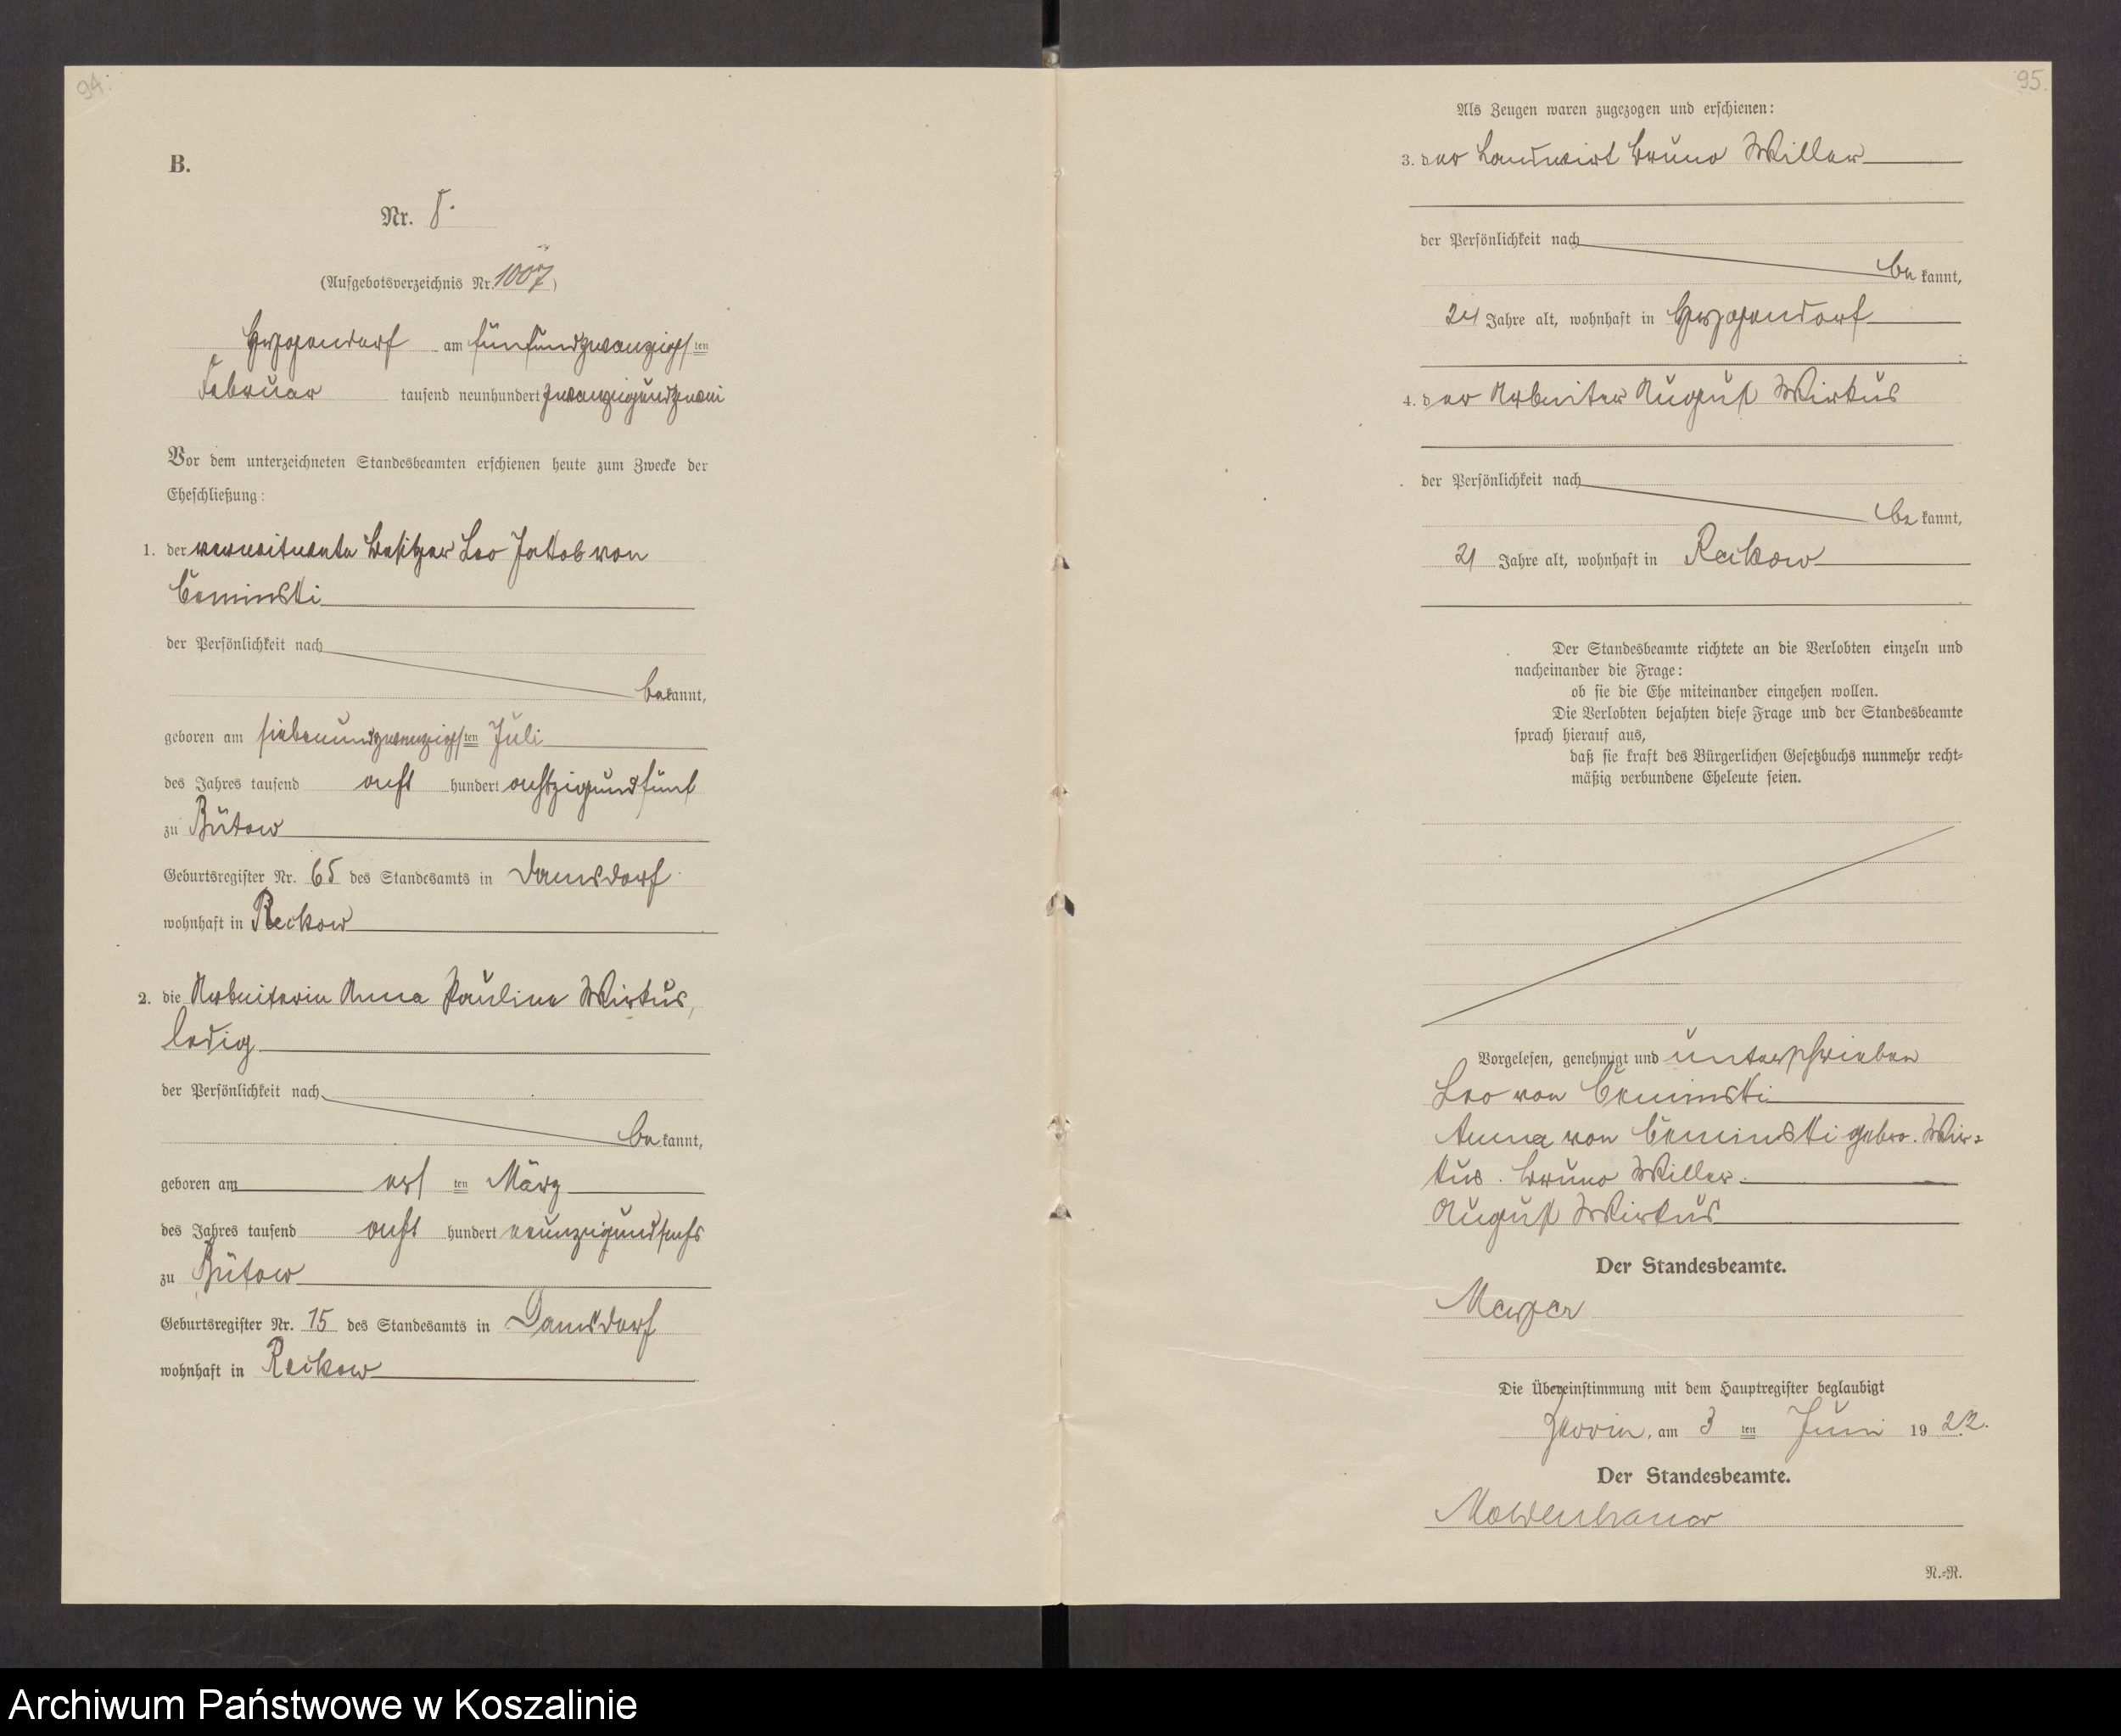 94.
B.
Nr. 8.
(Aufgebotsverzeichnis Nr. 1007)
am fünfundzwanzigsten
Februar tausend neunhundert zwanzigundzwei
Vor dem unterzeichneten Standesbeamten erschienen heute zum Zwecke der
Eheschließung:
1. der verwitwete Besitzer Leo Jakob von
Ceminski
der Persönlichkeit nach
bekannt,
geboren am siebenundzwanzigsten Juli
des Jahres tausend acht hundert achtzigundfünf
zu Bütow
Geburtsregister Nr. 65 des Standesamts in Damsdorf
wohnhaft in Reckow
2. die Arbeiterin Anna Pauline Wirkus,
ledig
der Persönlichkeit nach
bekannt,
geboren am ersten März
des Jahres tausend acht hundert neunzigundsechs
zu Bütow
Geburtsregister Nr. 15 des Standesamts in Damsdorf
wohnhaft in Reckow
95.
Als Zeugen waren zugezogen und erschienen:
3. der Landwirt Bruno Willer
der Persönlichkeit nach
bekannt,
24 Jahre alt, wohnhaft in
4. der Arbeiter August Wirkus
der Persönlichkeit nach
bekannt,
21 Jahre alt, wohnhaft in Reckow
Der Standesbeamte richtete an die Verlobten einzeln und
nacheinander die Frage:
ob sie die Ehe miteinander eingehen wollen.
Die Verlobten bejahten diese Frage und der Standesbeamte
sprach hierauf aus,
daß sie kraft des Bürgerlichen Gesetzbuchs nunmehr recht-
mäßig verbundene Eheleute seien.
Vorgelesen, genehmigt und unterschrieben
Leo von Ceminski
Anna von Ceminski gebor. Wir-
kus. Bruno Willer.
August Wirkus
Der Standesbeamte.
Die Übereinstimmung mit dem Hauptregister beglaubigt
am 3 ten Juni 1922.
Der Standesbeamte.
Moldenhauer
N.-R.
Archiwum Państwowe w Koszalinie